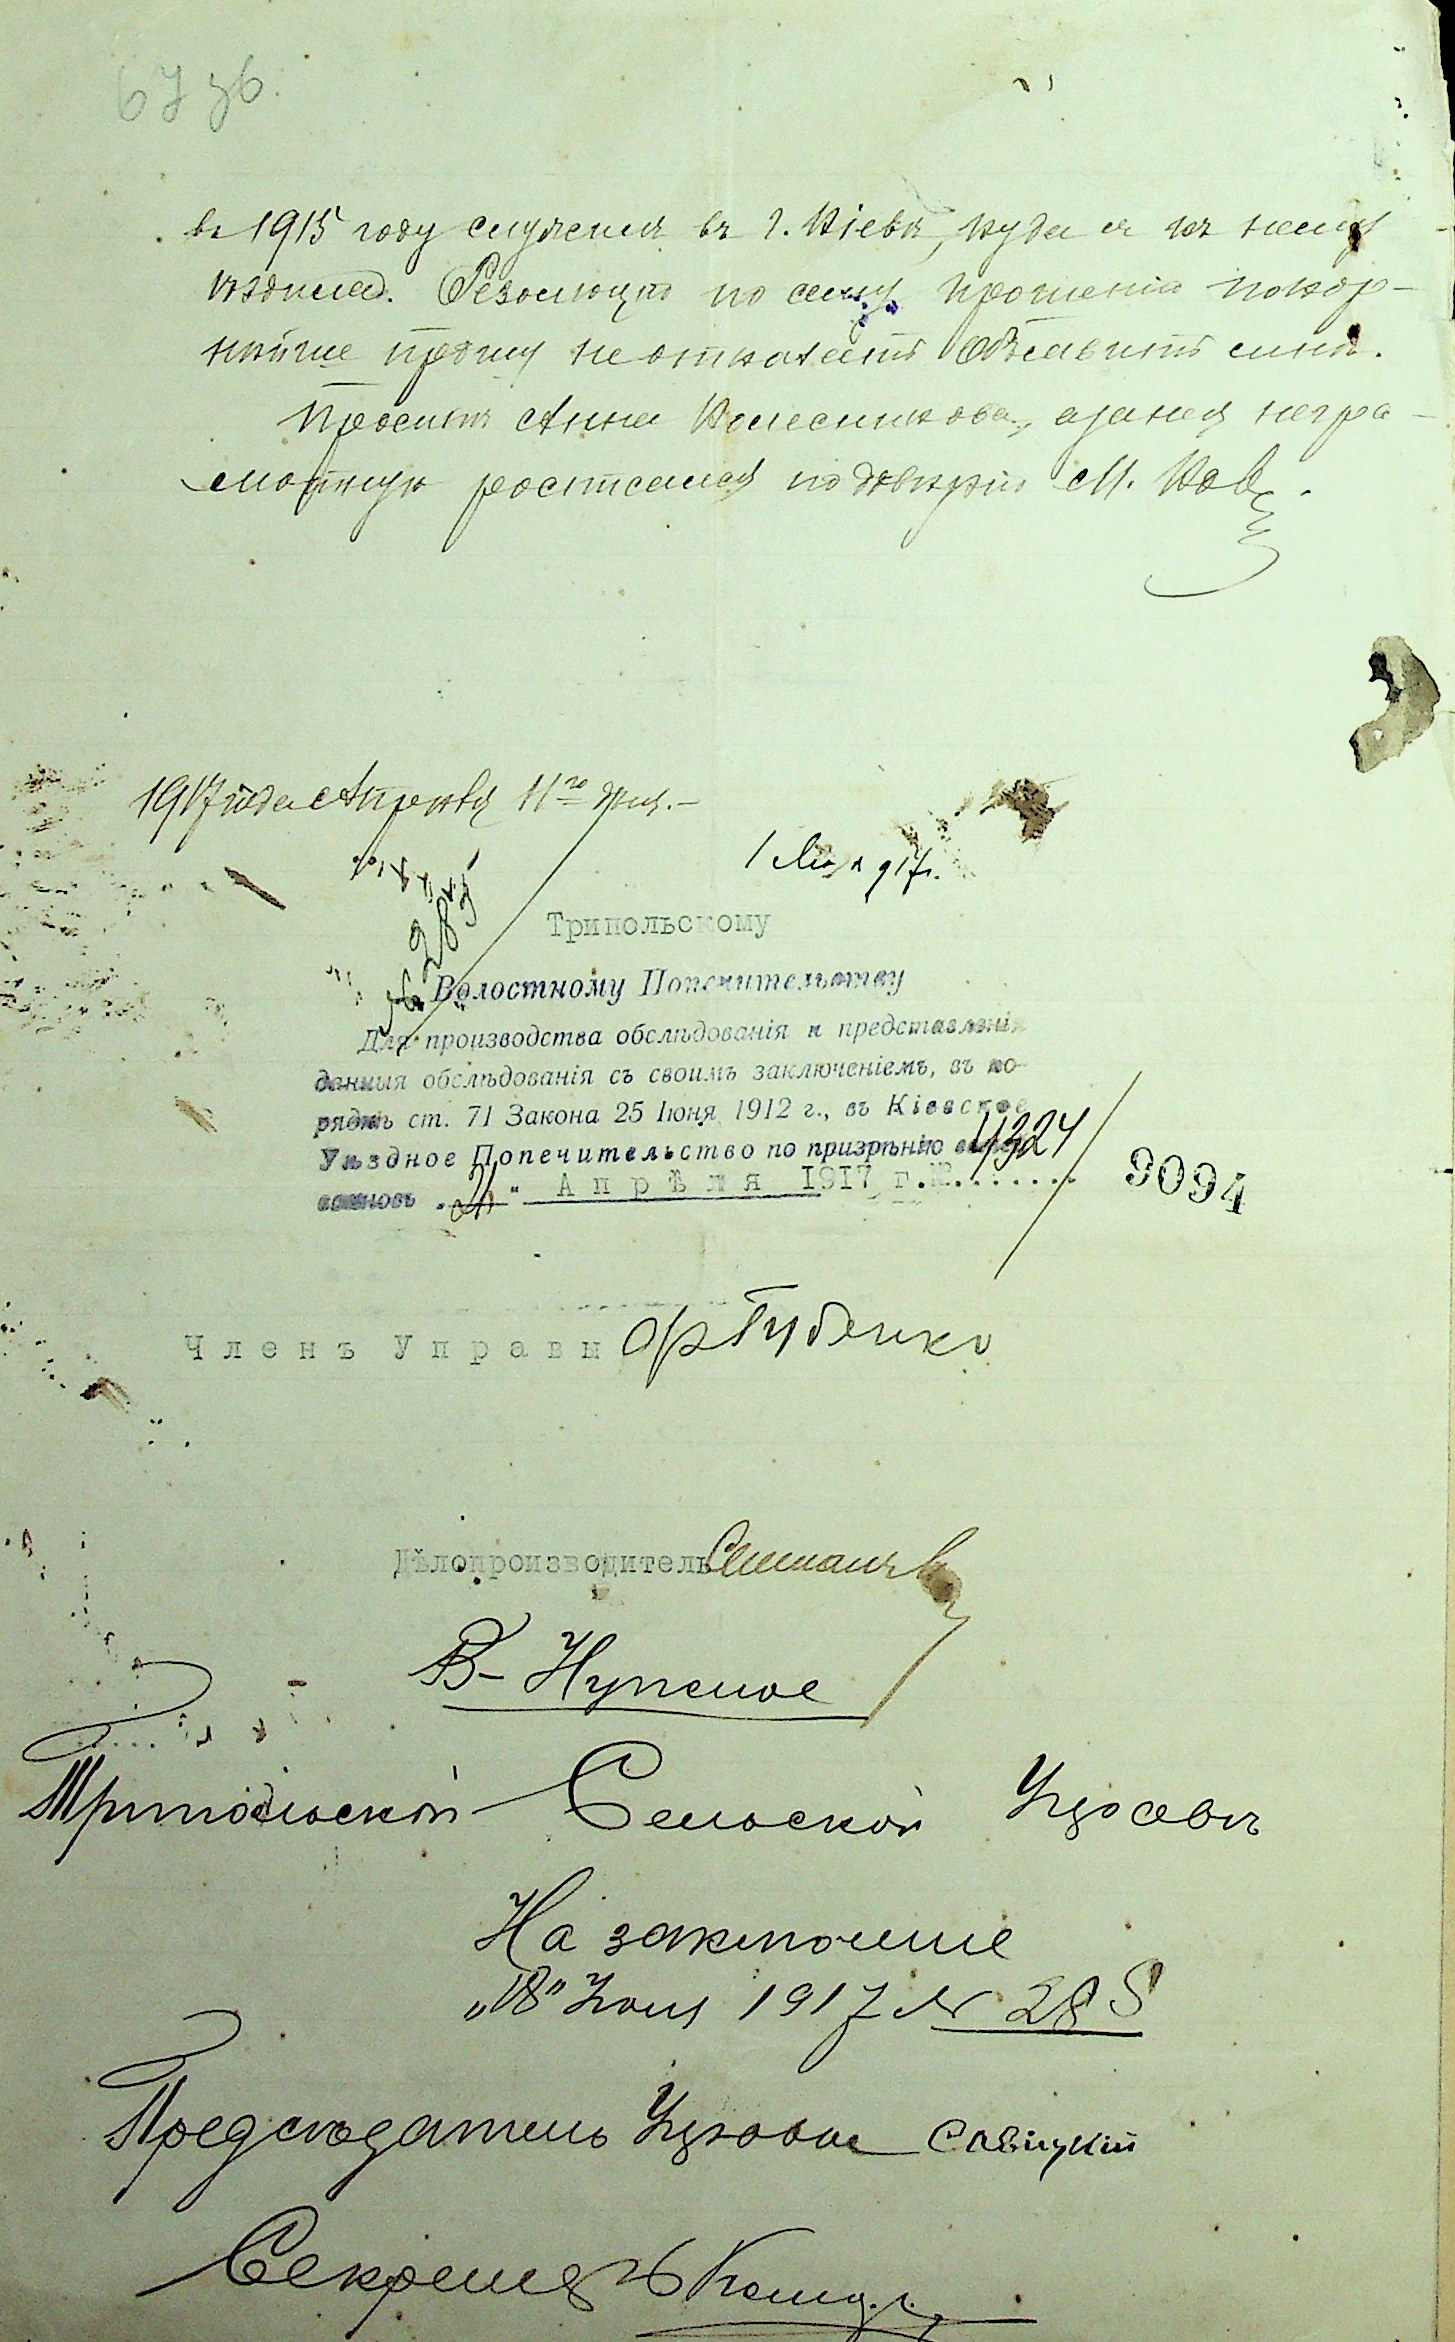 67 зб
въ 1915 году служилъ въ г. Кіевѣ, куда я къ нему
ѣздила. Резолюцію по сему прошенію покор-
нѣйше прошу не отказать объявить мнѣ.
Проситъ Анна Колесникова, а за нея негра-
мотную росписался по довѣрію М. Ков
1917 года Апрѣля 11го дня.
1 Мая 917г.
№ 285
Трипольскому
Волостному Попечительству
Для производства обслѣдованія и представленія
данныя обслѣдованія съ своимъ заключеніемъ, въ по-
рядкѣ ст. 71 Закона 25 Іюня 1912 г., въ Кіевское
Уѣздное Попечительство по призрѣнію
"21" Апрѣля 1917 г. № 4324
9094
Членъ Управы Губенко
Дѣлопроизводитель
В-Нужное
Трипольской Сельской Управѣ
На заключеніе
"18" Іюня 1917 № 285
Предсѣдатель Управы Савицкій
Секретарь